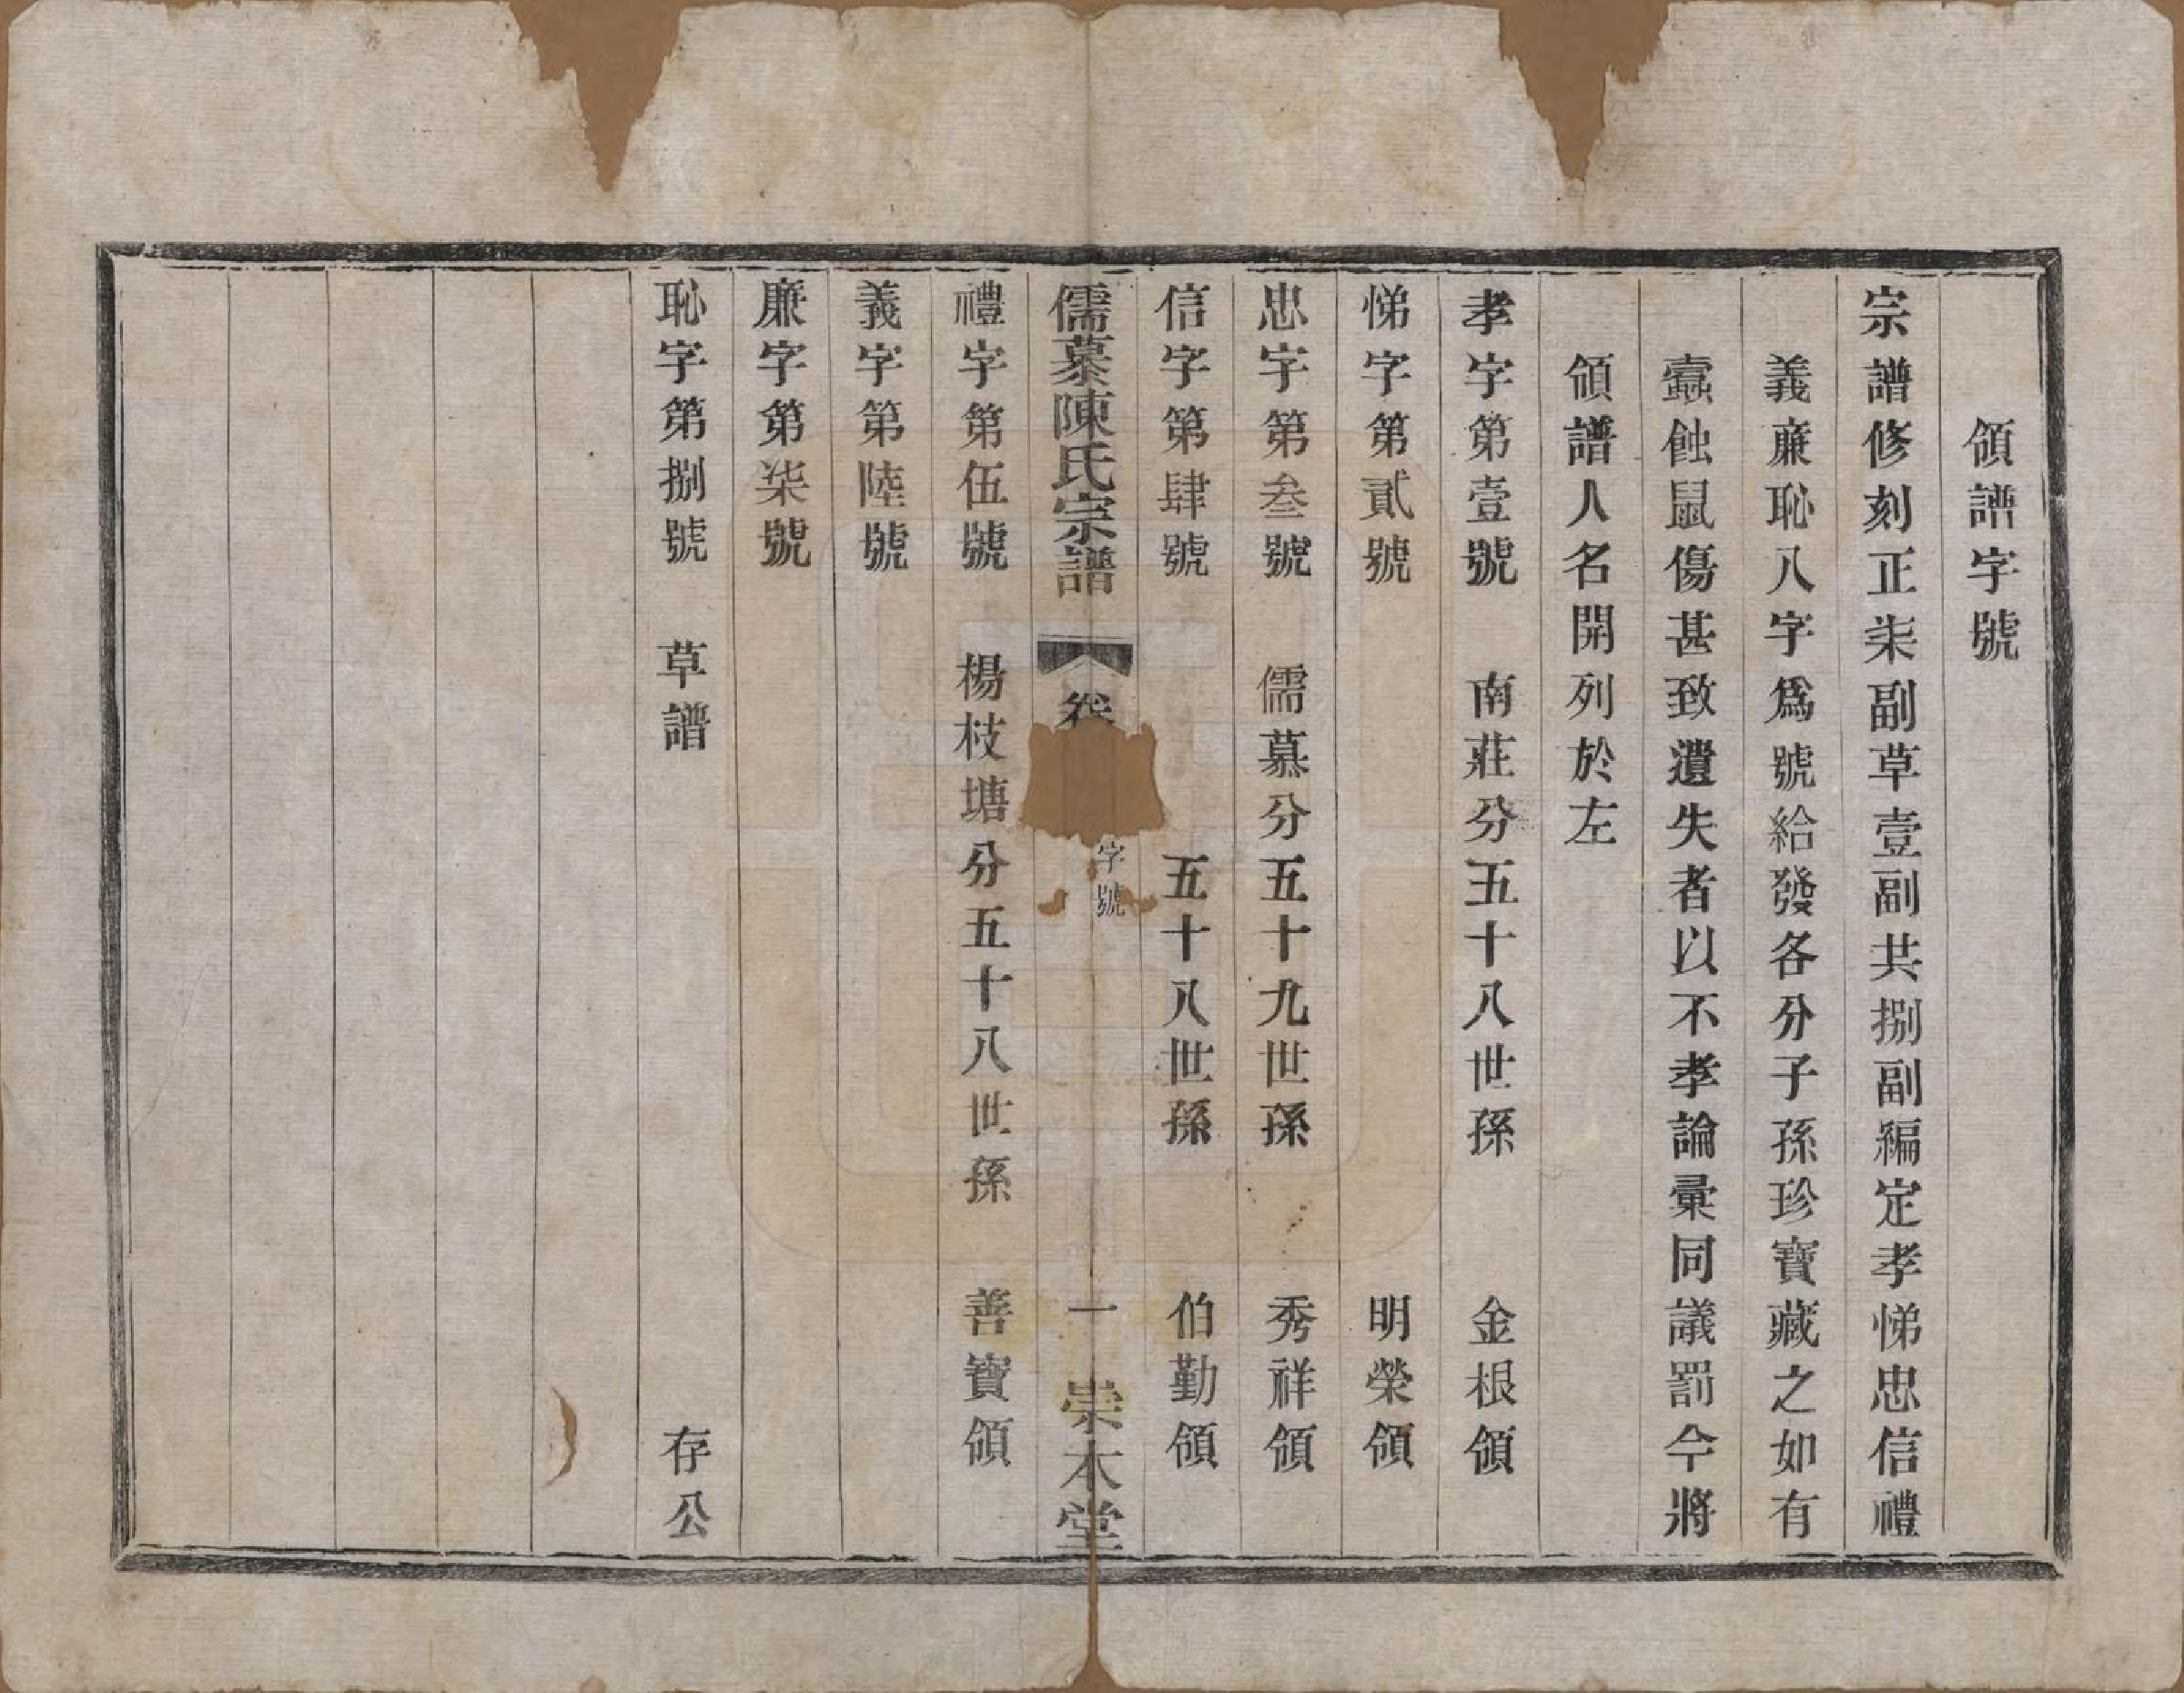 領譜字號
宗譜修刻正柒副草壹副共捌副編定孝悌忠信禮
義廉恥八字爲號給發各分子孫珍寶藏之如有
蠹蝕鼠傷甚致遺失者以不孝論彙同議罰今將
領譜人名開列於左
孝字第壹號 南莊分五十八世孫 金根領
悌字第貳號 明榮領
忠字第叁號 儒慕分五十九世孫 秀祥領
信字第肆號 五十八世孫 伯勤領
儒慕陳氏宗譜 卷 字號 一 崇本堂
禮字第伍號 楊枝塘分五十八世孫 善寶領
義字第陸號
廉字第柒號
恥字第捌號 草譜 存公